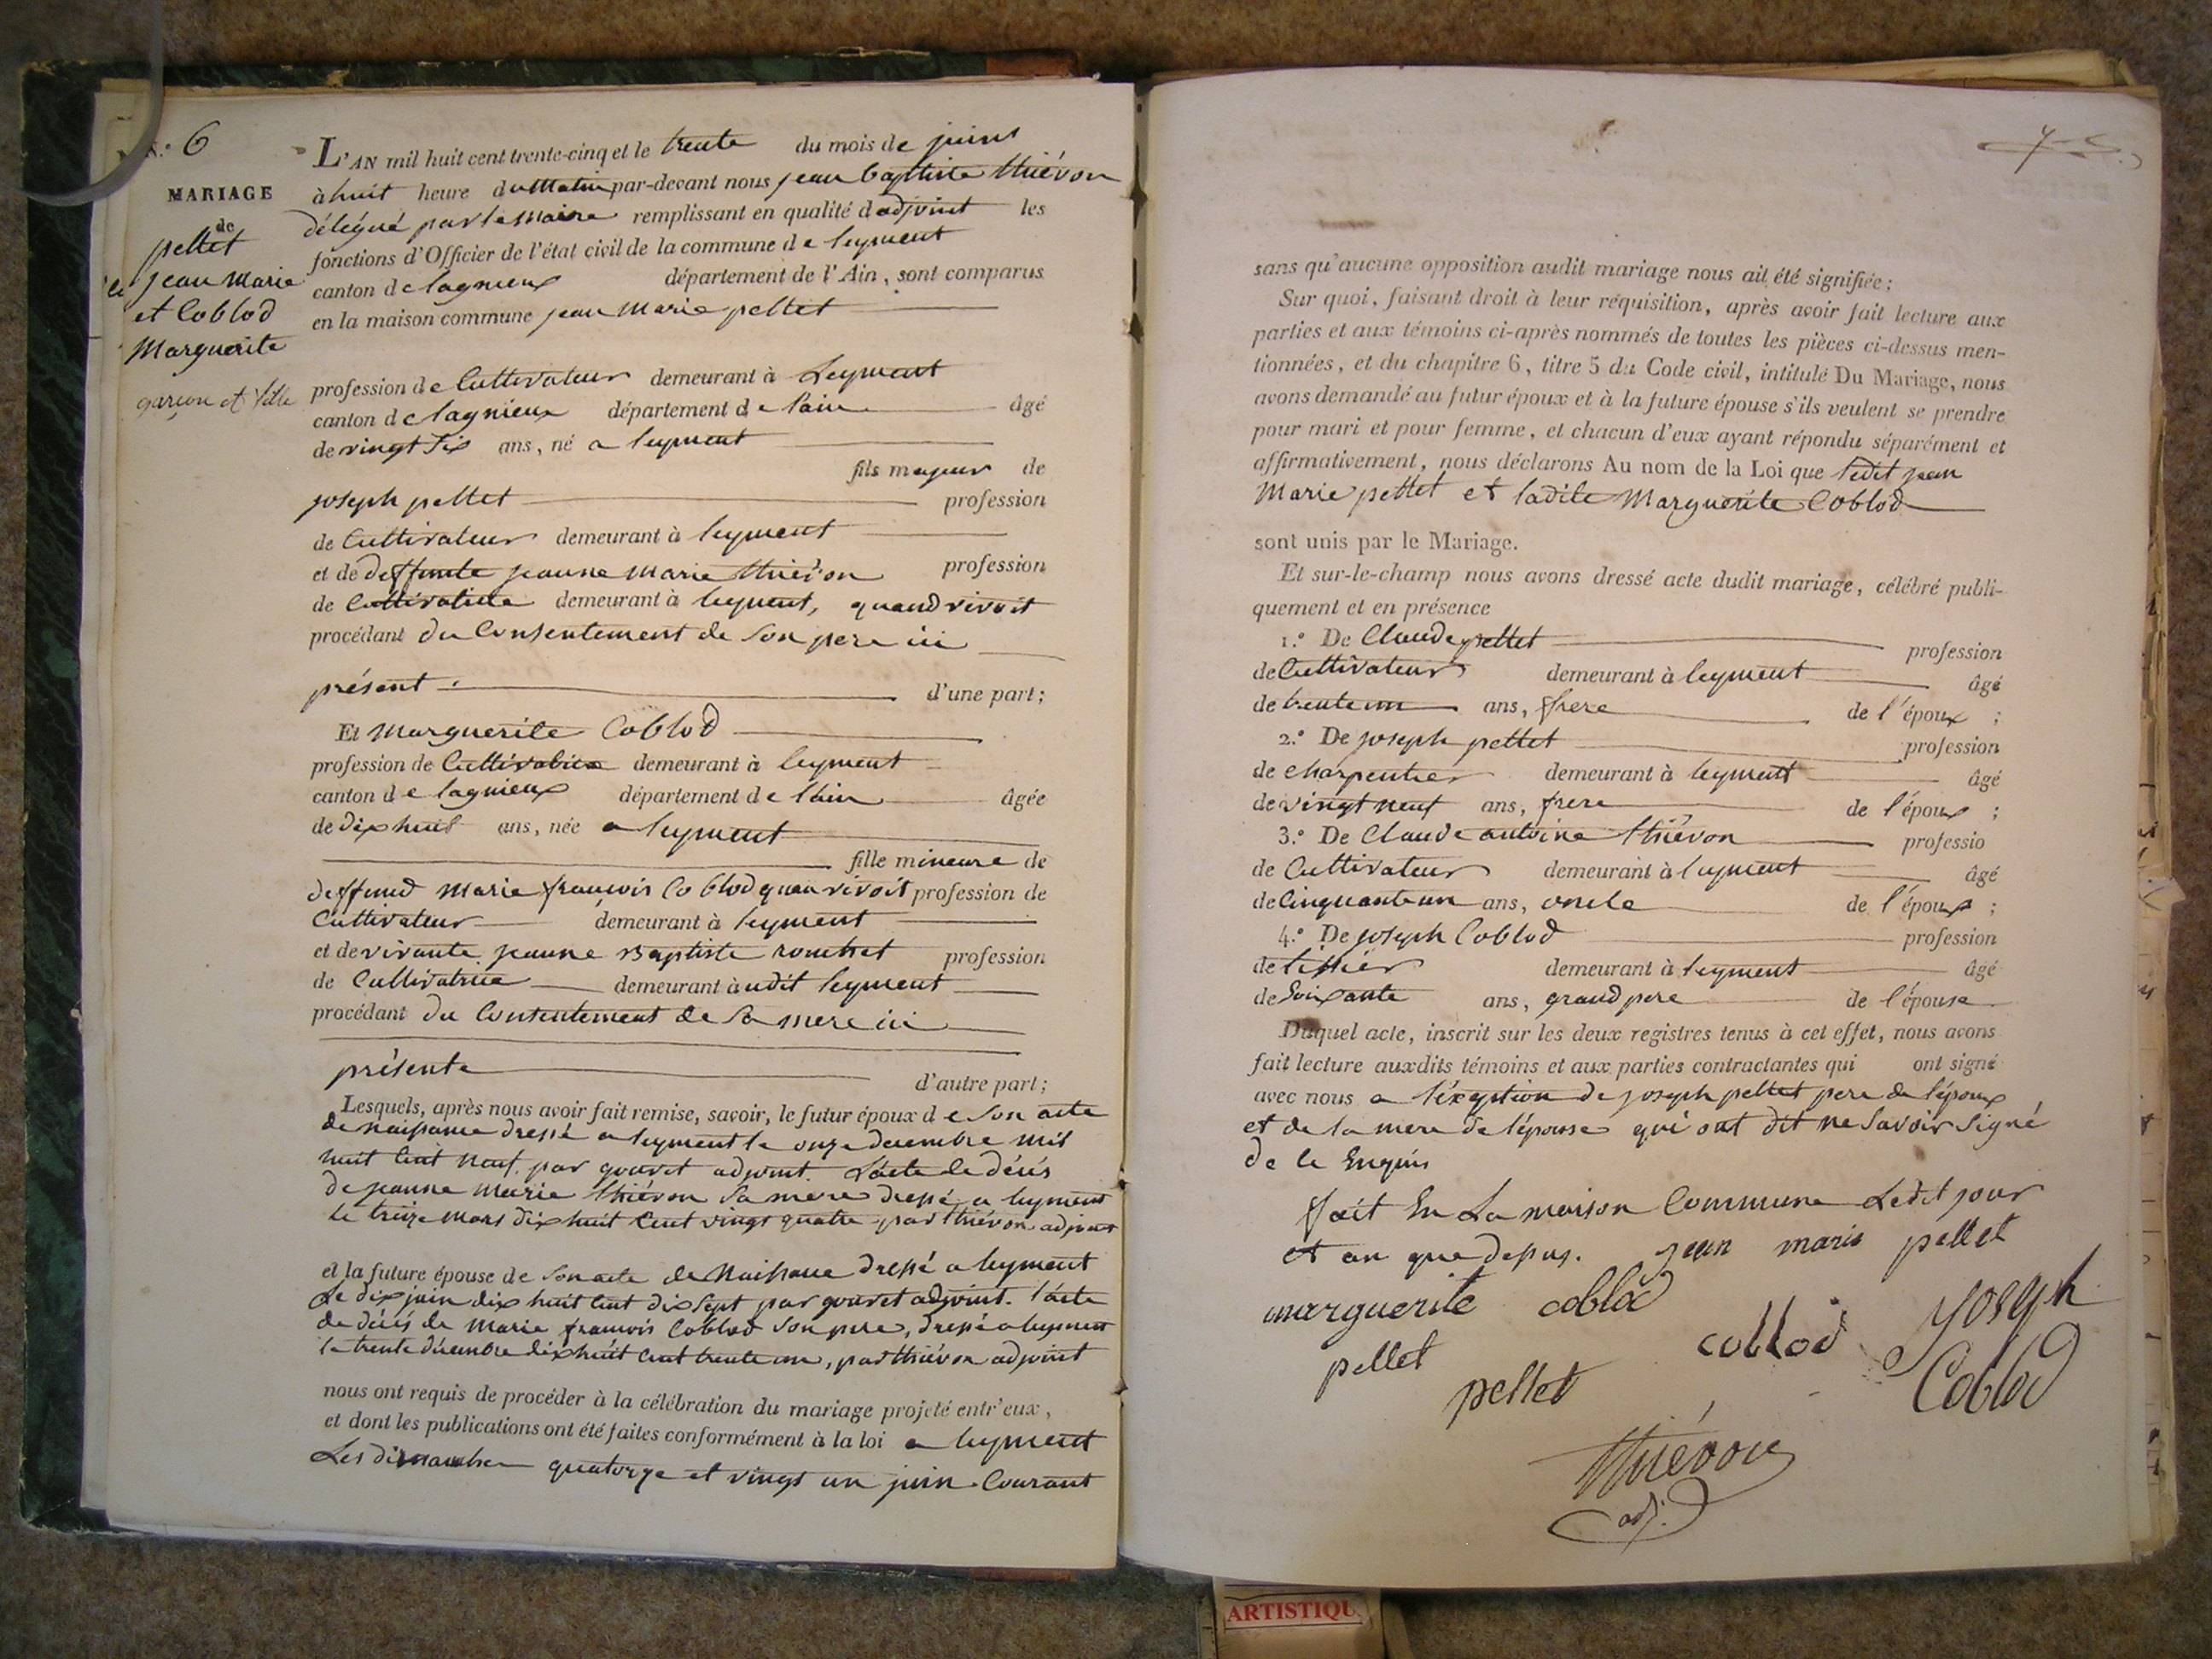 N.° 6
MARIAGE
de
pellet
jean Marie
et Coblod
Marguerite
garçon et fille
L'AN mil huit cent trente-cinq et le trente du mois de juin
à huit heure du Matin par-devant nous jean baptiste thiévon
délégué par le maire remplissant en qualité d adjoint les
fonctions d'Officier de l'état civil de la commune de leyment
canton de lagnieux département de l'Ain, sont comparus
en la maison commune jean Marie pellet
profession de Cultivateur demeurant à Leyment
canton de lagnieux département de l'ain âgé
de vingt six ans, né a leyment
fils majeur de
joseph pellet profession
de Cultivateur demeurant à leyment
et de deffunte jeanne Marie thiévon profession
de Cultivatrice demeurant à leyment, quand vivoit
procédant du Consentement de Son pere ici
présent. d'une part;
Et Marguerite Coblod
profession de Cultivatrice demeurant à leyment
canton de lagnieux département de l'ain âgée
de dix huit ans, née a leyment
fille mineure de
deffund Marie françois Coblod quan vivoit profession de
Cultivateur demeurant à leyment
et de vivante jeanne Baptiste profession
de Cultivatrice demeurant à udit leyment
procédant du Consentement de Sa mere ici
présente d'autre part;
Lesquels, après nous avoir fait remise, savoir, le futur époux de Son acte
de naissance dressé a leyment le onze decembre mil
huit Cent neuf. par gouvet adjoint. L'acte de décés
de jeanne Marie thiévon Sa mere dressé a leyment
le treize Mars dix huit Cent vingt quatre par thiévon adjoint
et la future épouse de Son acte de Naissance dressé a leyment
Le dix juin dix huit Cent dix Sept par gouvet adjoint. l'acte
de décés de Marie françois Coblod Son pere, dressé a leyment
le trente décembre dix huit Cent trente un, par thiévon adjoint
nous ont requis de procéder à la célébration du mariage projeté entr'eux,
et dont les publications ont été faites conformément à la loi a leyment
Les dimanches quatorze et vingt un juin Courant
sans qu'aucune opposition audit mariage nous ait été signifiée;
Sur quoi, faisant droit à leur réquisition, après avoir fait lecture aux
parties et aux témoins ci-après nommés de toutes les pièces ci-dessus men-
tionnées, et du chapitre 6, titre 5 du Code civil, intitulé Du Mariage, nous
avons demandé au futur époux et à la future épouse s'ils veulent se prendre
pour mari et pour femme, et chacun d'eux ayant répondu séparément et
affirmativement, nous déclarons Au nom de la Loi que ledit jean
Marie pellet et ladite Marguerite Coblod
sont unis par le Mariage.
Et sur-le-champ nous avons dressé acte dudit mariage, célébré publi-
quement et en présence
1.° De Claude pellet profession
de Cultivateur demeurant à leyment âgé
de trente un ans, frere de l'époux ;
2.° De joseph pellet profession
de charpentier demeurant à leyment âgé
de vingt neuf ans, frere de l'époux ;
3.° De Claude antoine thiévon professio
de Cultivateur demeurant à leyment âgé
de Cinquante un ans, oncle de l'époux ;
4.° De joseph Coblod profession
de tissier demeurant à leyment âgé
de Soixante ans, grand pere de l'épouse
Duquel acte, inscrit sur les deux registres tenus à cet effet, nous avons
fait lecture auxdits témoins et aux parties contractantes qui ont signé
avec nous a l'éxeption de joseph pellet pere de l'époux
et de la mere de l'épouse qui ont dit ne Savoir Signé
de le Enquis
fait En La maison Commune Ledit jour
et an que depus. jean marie pellet
marguerite coblod
joseph
pellet coblod Coblod
pellet
thiévon
adj.
ARTISTIQU